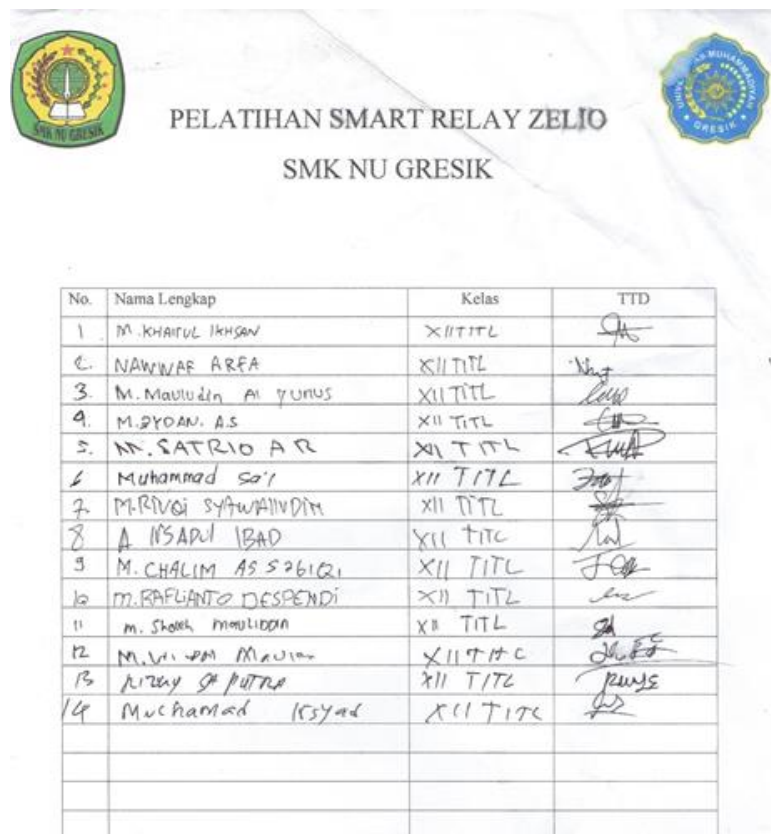 SMK NU GRESIK
UNIVERSITAS MUHAMMADIYAH GRESIK
PELATIHAN SMART RELAY ZELIO
SMK NU GRESIK
No. Nama Lengkap Kelas TTD
1 M. KHAIRUL IKHSAN XII TITL
2. NAWWAF ARFA XII TITL
3. M. Mauludin Al Yunus XII TITL
4. M. ZYDAN. A.S XII TITL
5. M. SATRIO A R XII TITL
6 Muhammad Sa'i XII TITL
7. M. RIVQI SYAWALLUDIN XII TITL
8 A IRSADUL IBAD XII TITL
9 M. CHALIM AS XII TITL
10 M. RAFLIANTO DESPENDI XII TITL
11 M. Sholeh MAULIDDIN XII TITL
12 M. XII TITL
13 RIZKY SAPUTRA XII TITL
14 Muchamad Irsyad XII TITL